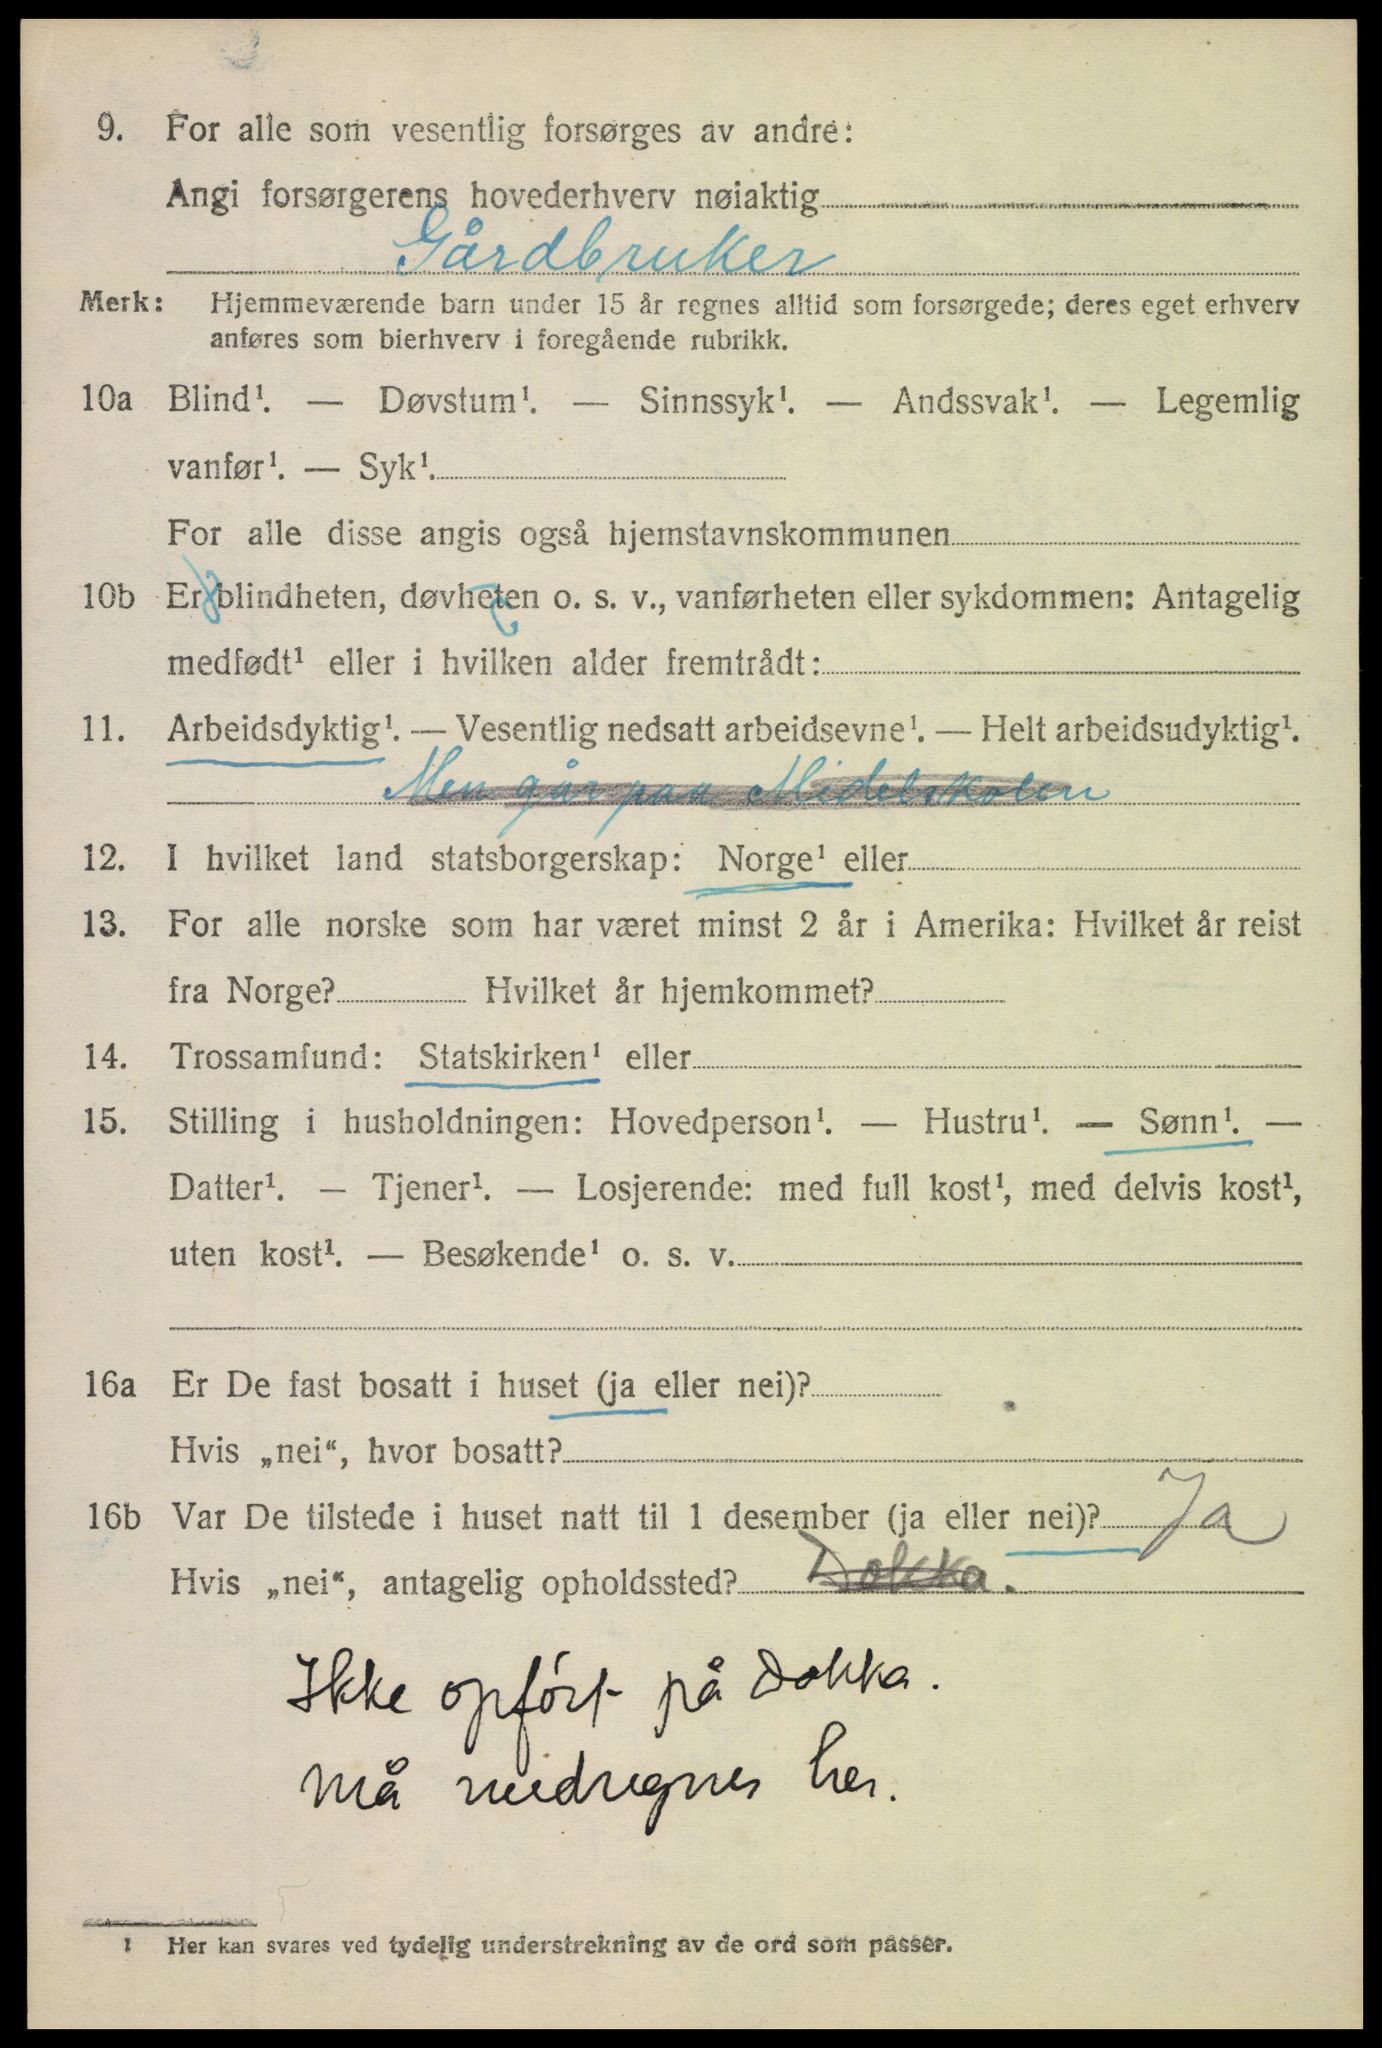 9. For alle som vesentlig forsørges av andre:
Angi forsørgerens hovederhverv nøiaktig
Gårdbruker
Merk: Hjemmeværende barn under 15 år regnes alltid som forsørgede; deres eget erhverv
anføres som bierhverv i foregående rubrikk.
10a Blind¹. — Døvstum¹. — Sinnssyk¹. — Andssvak¹. — Legemlig
vanfør¹. — Syk¹.
For alle disse angis også hjemstavnskommunen
10b Er blindheten, døvheten o. s. v., vanførheten eller sykdommen: Antagelig
medfødt¹ eller i hvilken alder fremtrådt:
11. Arbeidsdyktig¹. — Vesentlig nedsatt arbeidsevne¹. — Helt arbeidsudyktig¹.
Men går paa Midelskolen
12. I hvilket land statsborgerskap: Norge¹ eller
13. For alle norske som har været minst 2 år i Amerika: Hvilket år reist
fra Norge? Hvilket år hjemkommet?
14. Trossamfund: Statskirken¹ eller
15. Stilling i husholdningen: Hovedperson¹. — Hustru¹. — Sønn¹. —
Datter¹. — Tjener¹. — Losjerende: med full kost¹, med delvis kost¹,
uten kost¹. — Besøkende¹ o. s. v.
16a Er De fast bosatt i huset (ja eller nei)?
Hvis „nei“, hvor bosatt?
16b Var De tilstede i huset natt til 1 desember (ja eller nei)? Ja
Hvis „nei“, antagelig opholdssted? Dokka.
Ikke opført på Dokka.
Må medregnes her.
1 Her kan svares ved tydelig understrekning av de ord som passer.